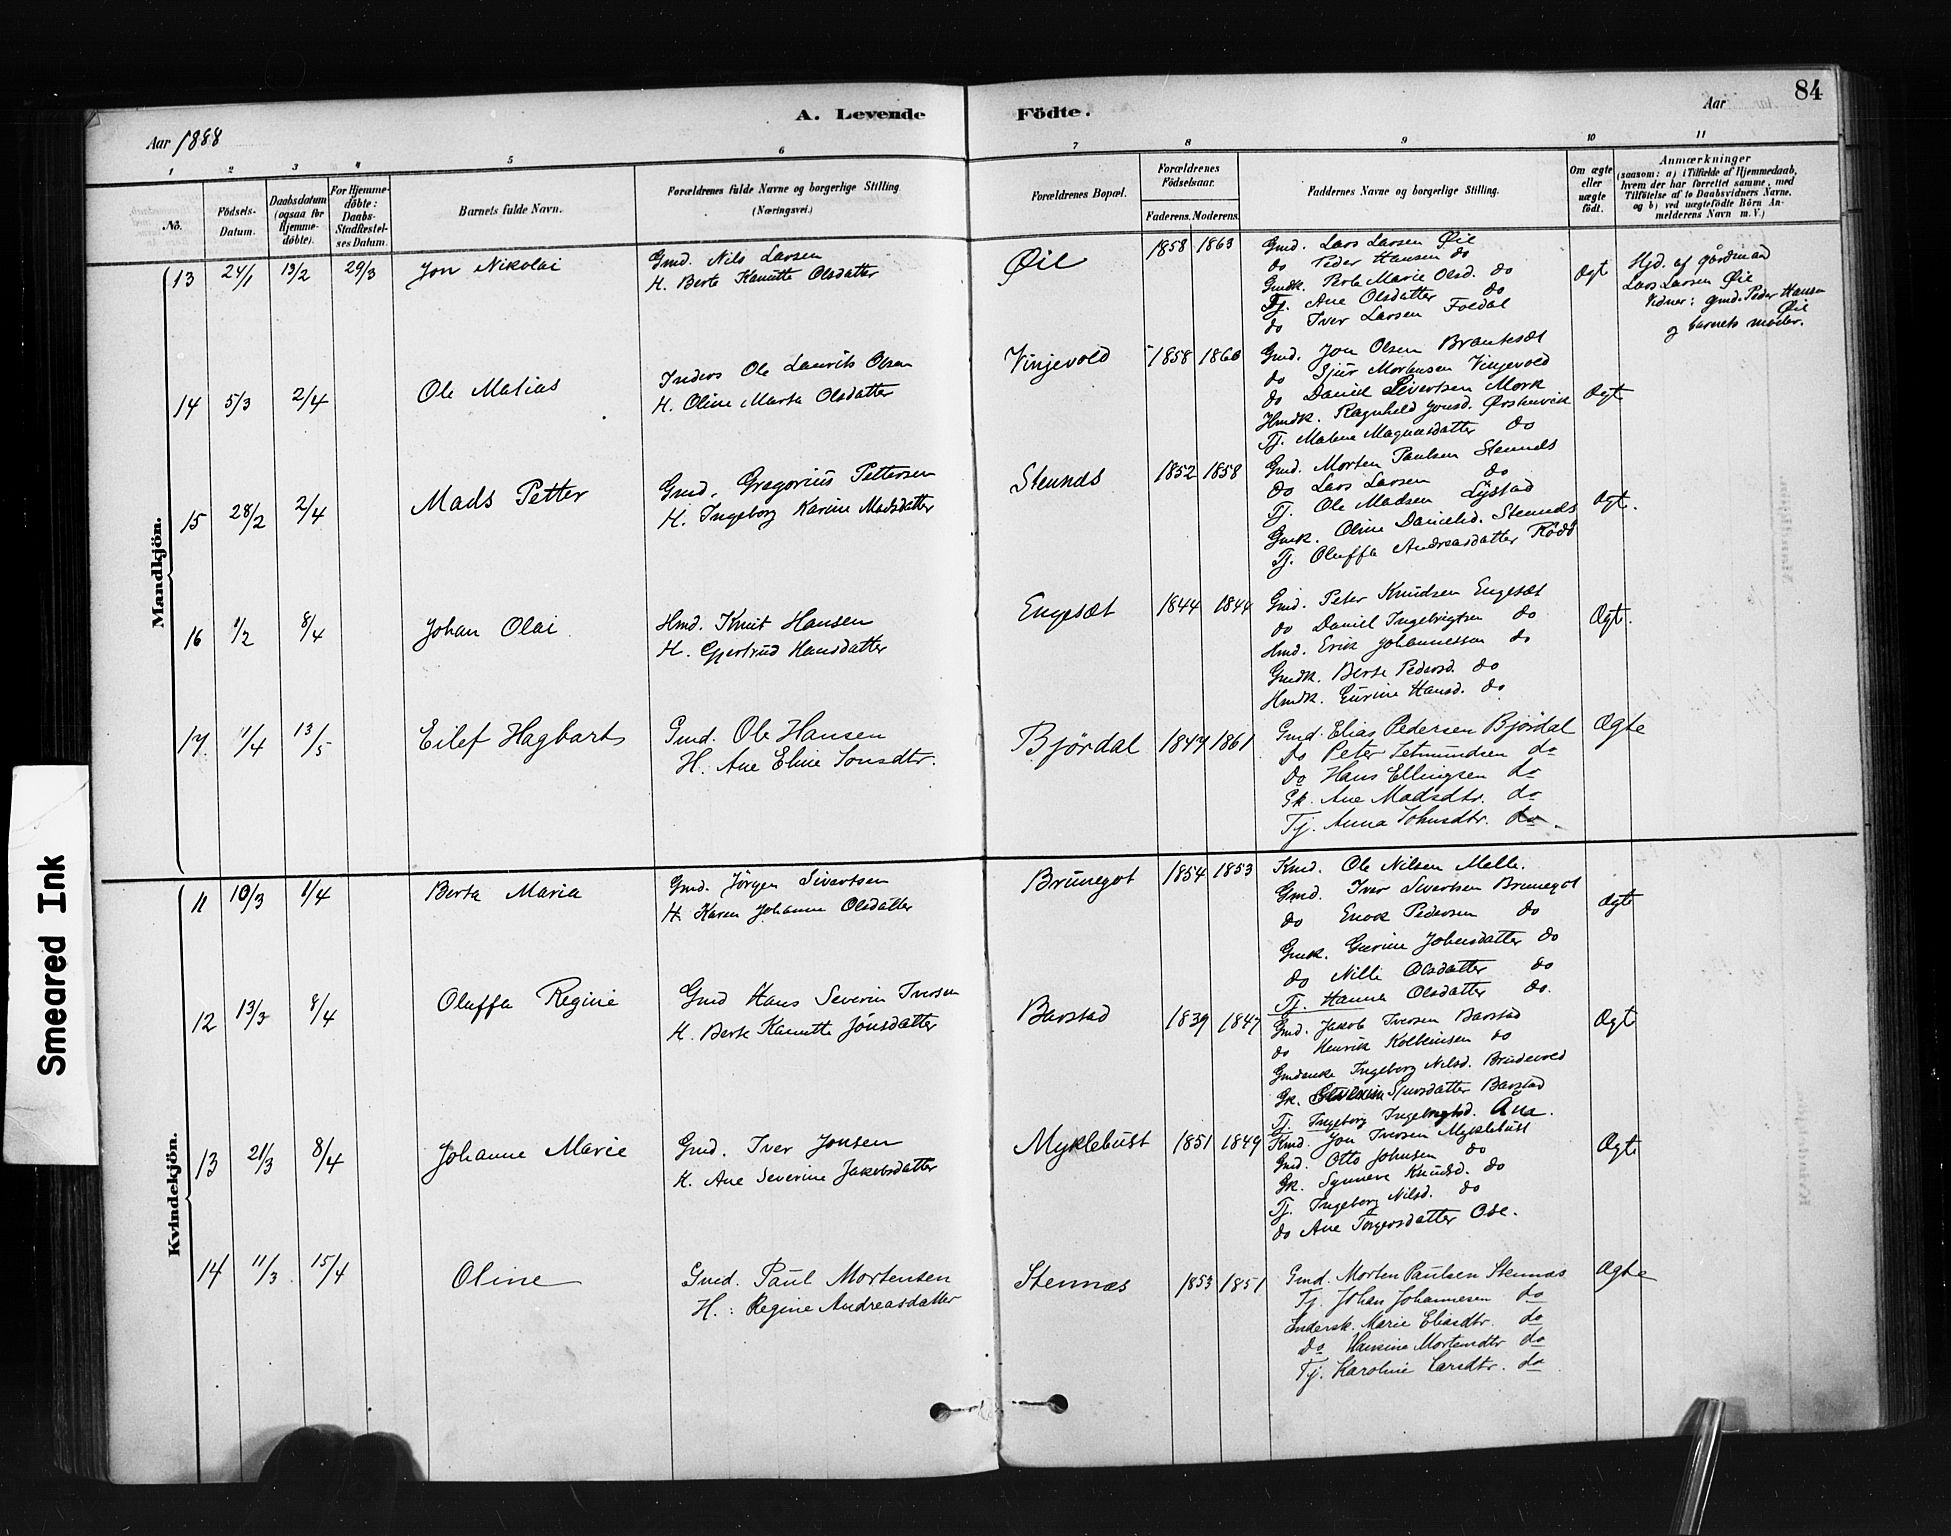 84
A. Levende Födte.
Aar 1888
Aar
1 2 3 4 5 6 7 8 9 10 11
No.
Födsels-Datum.
Daabsdatum (ogsaa for Hjemme-döbte).
For Hjemme-döbte: Daabs-Stadfæstel-ses Datum.
Barnets fulde Navn.
Forældrenes fulde Navne og borgerlige Stilling (Næringsvei.)
Forældrenes Bopæl.
Forældrenes Födselsaar.
Faderens. Moderens.
Faddernes Navne og borgerlige Stilling.
Om ægte eller uægte födt.
Anmærkninger
(saasom: a) i Tilfælde af Hjemmedaab, hvem der har forrettet samme, med Tilföielse af to Daabsvidners Navne, og b) ved uægtefödte Börn An-melderens Navn m. V.)
Mandkjön.
13 24/1 13/2 29/3 Jon Nikolai
Gmd. Nils Larsen
H. Berte Kanutte Olsdatter
Øie 1858 1863
Gmd. Lars Larsen Øie
do Peder Hansen do
Gmdk. Berte Marie Olsd. do
Tj. Ane Olsdatter do
do Iver Larsen Foldal
Ægt
Hjd. af gårdmand
Lars Larsen Øie
Vidner: gmd. Peder Hansen
Øie
og barnets moder.
14 5/3 2/4 Ole Matias
Inders Ole Laurits Olsen
H. Oline Marta Olsdatter
Vinjevold 1858 1860
Gmd. Jon Olsen Brautesæt
do Sjur Mortensen Vinjevold
do Daniel Sivertsen Mork
Hmdk. Ragnhild Jonsd. Ørstenvik
Tj. Malene Magnusdatter do
Ægt
15 28/2 2/4 Mads Petter
Gmd. Gregorius Pettersen
H. Ingeborg Karine Madsdatter
Stennæs 1852 1858
Gmd. Morten Paulsen Stennæs
do Lars Larsen do
Tj. Ole Madsen Systad
Gmk. Oline Danielsd. Stennæs
Tj. Oluffa Andreasdatter Rödö
Ægt.
16 1/2 8/4 Johan Olai
Hmd. Knut Hansen
H. Gjertrud Hansdatter
Engesæt 1844 1844
Gmd. Peter Knudsen Engesæt
do Daniel Ingebrigtsen do
Hmd. Erik Johannessen do
Gmdk. Berte Pedersd. do
Hmdk. Gurine Hansd. do
Ægt.
17 1/4 13/5 Eilef Hagbart
Gmd. Ole Hansen
H. Ane Eline Jonsdtr.
Björdal 1847 1861
Gmd. Elias Pedersen Björdal
Do Peter Setmundsen do
Do Hans Ellingsen do
Gk. Ane Madsdtr. do
Tj. Anna Johnsdtr. do.
Ægte
Kvindekjön.
11 10/3 1/4 Berta Maria
Gmd. Jörgen Sivertsen
H. Karen Johanne Olsdatter
Brünegot 1854 1853
Kmd. Ole Nilsen Melle.
Gmd. Iver Sivertsen Brunegot
do Enok Pedersen do
Gmk. Gurine Johnsdatter do
do Nille Olsdatter do
Tj. Hanna Olsdatter do.
Ægt
12 13/3 8/4 Oluffa Regine
Gmd Hans Severin Iversen
H. Berte Kanutte Jönsdatter
Barstad 1839 1847
Gmd. Jakob Iversen Barstad
do Henrik Kolbeinsen do
Gmdenke Ingeborg Nilsd. Brudevold
Gk. Sjursdatter Barstad
Tj. Ingeborg Ingebrigtsd. Åna.
Ægt
13 21/3 8/4 Johanne Marie
Gmd. Iver Jonsen
H. Ane Severine Jakobsdatter
Myklebust 1851 1849
Kmd. Jon Iversen Myklebust
Gmd. Otto Johnsen do
Gk. Synnere Knudsd. do
Tj. Ingeborg Nilsd. do
do Ane Torgersdatter Ose.
Ægt
14 11/3 15/4 Oline
Gmd. Paul Mortensen
H.: Regine Andreasdatter
Stennæs 1853 1851
Gmd. Morten Paulsen Stennæs
Tj. Johan Johannesen do
Indersk. Marie Eliasdtr. do
Do Hansine Mortensdtr do
Tj. Karoline Larsdtr. do
Ægte
Smeared Ink